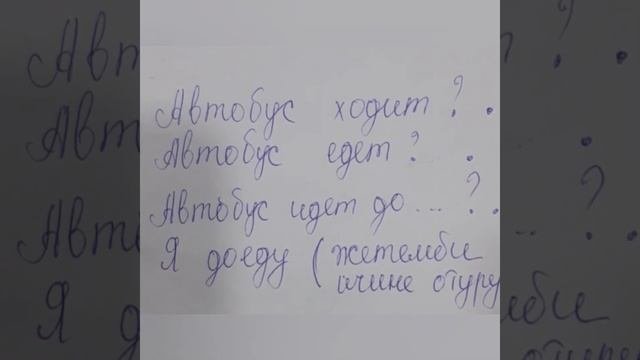 Автобус ходит? .
Автобус едет? .
Автобус идет до ...? .
Я доеду (жетемби
ичине отуру